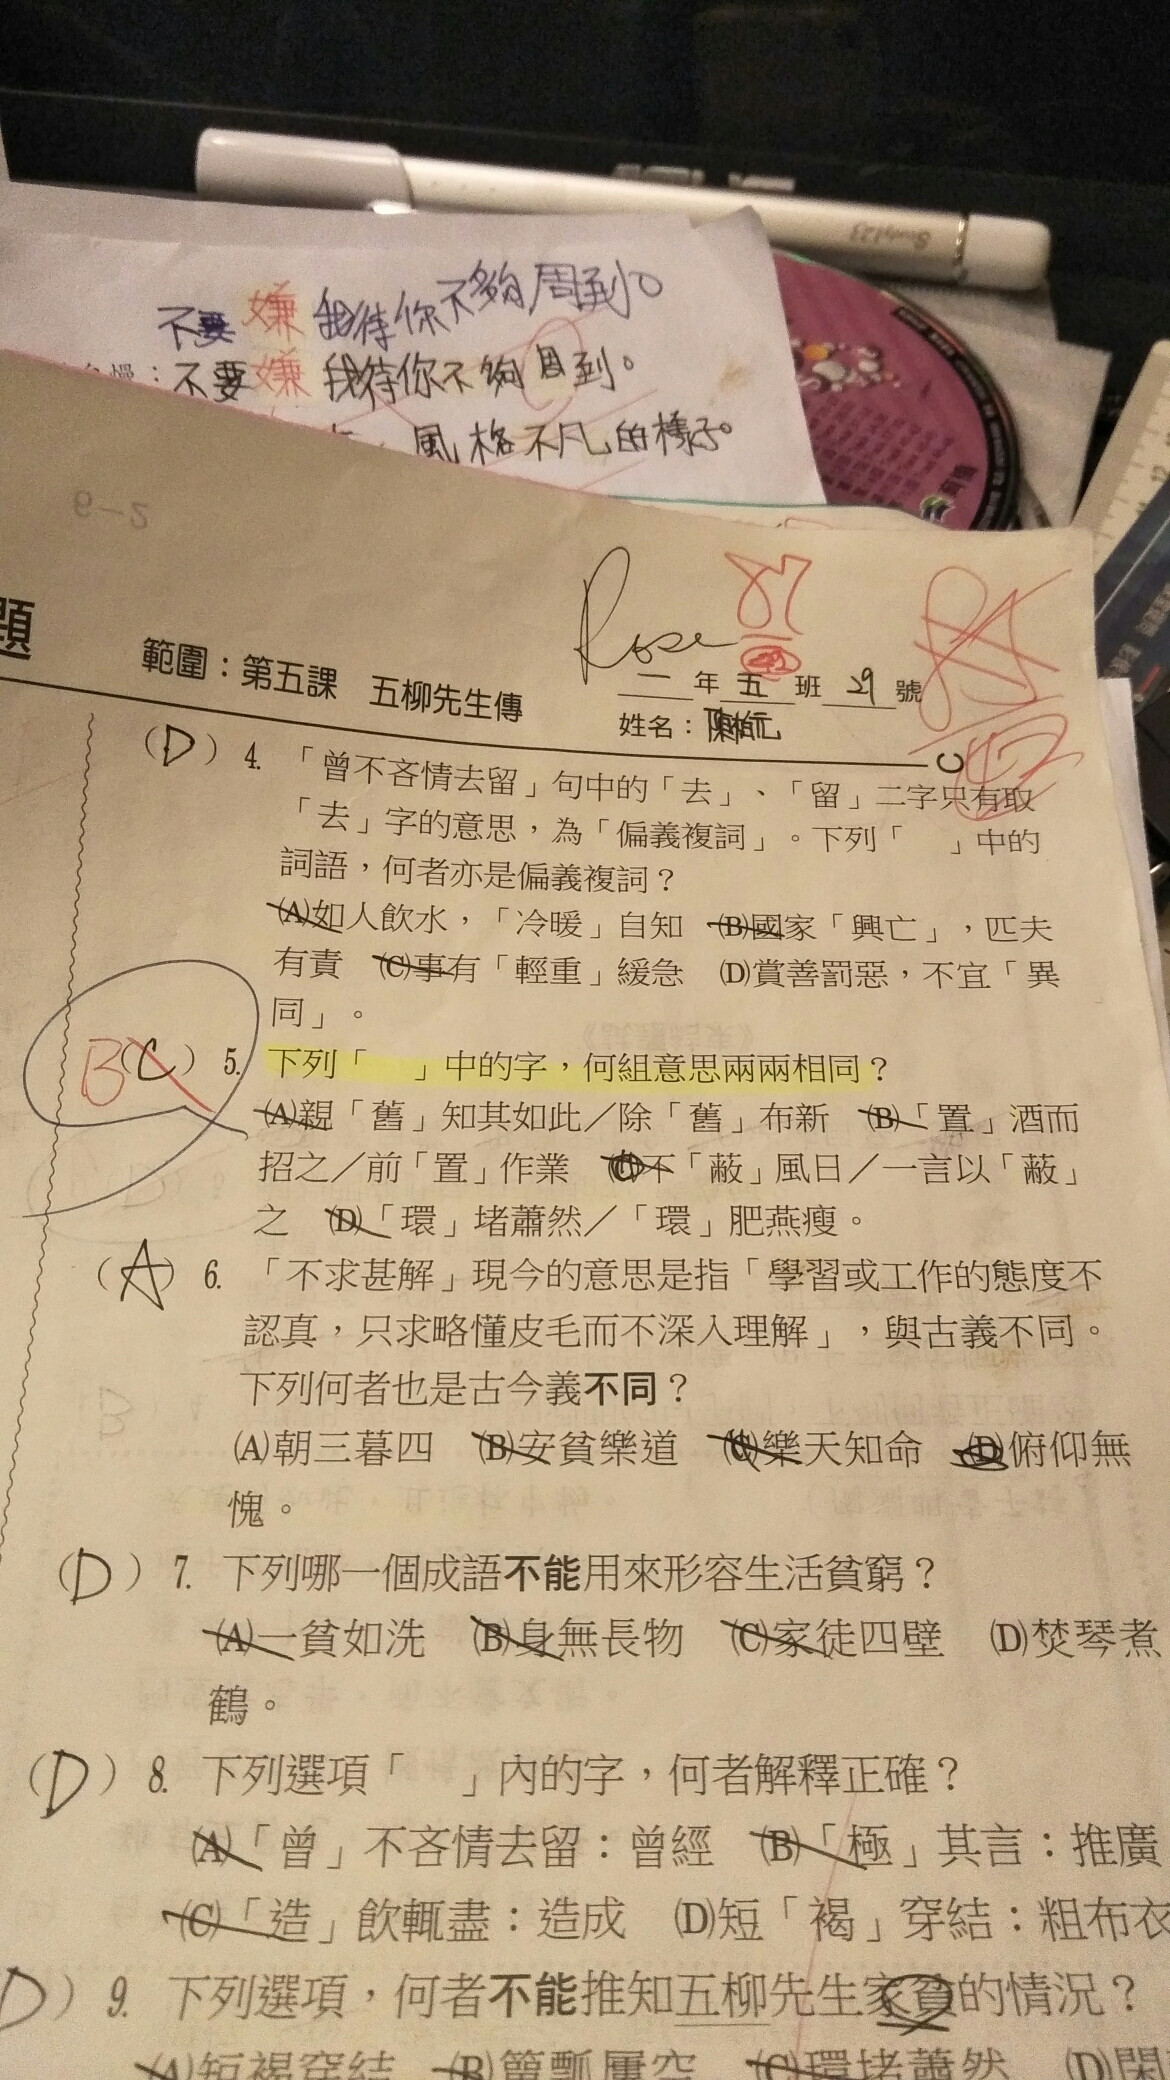 Study123
不要嫌我待你不夠周到。
不要嫌我待你不夠周到。
風格不凡的樣子。
6-2
Rose
87
題
範圍：第五課 五柳先生傳
一年五班29號
姓名：陳
C
(D) 4. 「曾不吝情去留」句中的「去」、「留」二字只有取
「去」字的意思，為「偏義複詞」。下列「　」中的
詞語，何者亦是偏義複詞？
(A)如人飲水，「冷暖」自知 (B)國家「興亡」，匹夫
有責 (C)事有「輕重」緩急 (D)賞善罰惡，不宜「異
同」。
B(C) 5. 下列「　」中的字，何組意思兩兩相同？
(A)親「舊」知其如此／除「舊」布新 (B)「置」酒而
招之／前「置」作業 (C)不「蔽」風日／一言以「蔽」
之 (D)「環」堵蕭然／「環」肥燕瘦。
(A) 6. 「不求甚解」現今的意思是指「學習或工作的態度不
認真，只求略懂皮毛而不深入理解」，與古義不同。
下列何者也是古今義不同？
(A)朝三暮四 (B)安貧樂道 (C)樂天知命 (D)俯仰無
愧。
(D) 7. 下列哪一個成語不能用來形容生活貧窮？
(A)一貧如洗 (B)身無長物 (C)家徒四壁 (D)焚琴煮
鶴。
(D) 8. 下列選項「　」內的字，何者解釋正確？
(A)「曾」不吝情去留：曾經 (B)「極」其言：推廣
(C)「造」飲輒盡：造成 (D)短「褐」穿結：粗布衣
D) 9. 下列選項，何者不能推知五柳先生家貧的情況？
(A)短褐穿結 (B)簞瓢屢空 (C)環堵蕭然 (D)閑